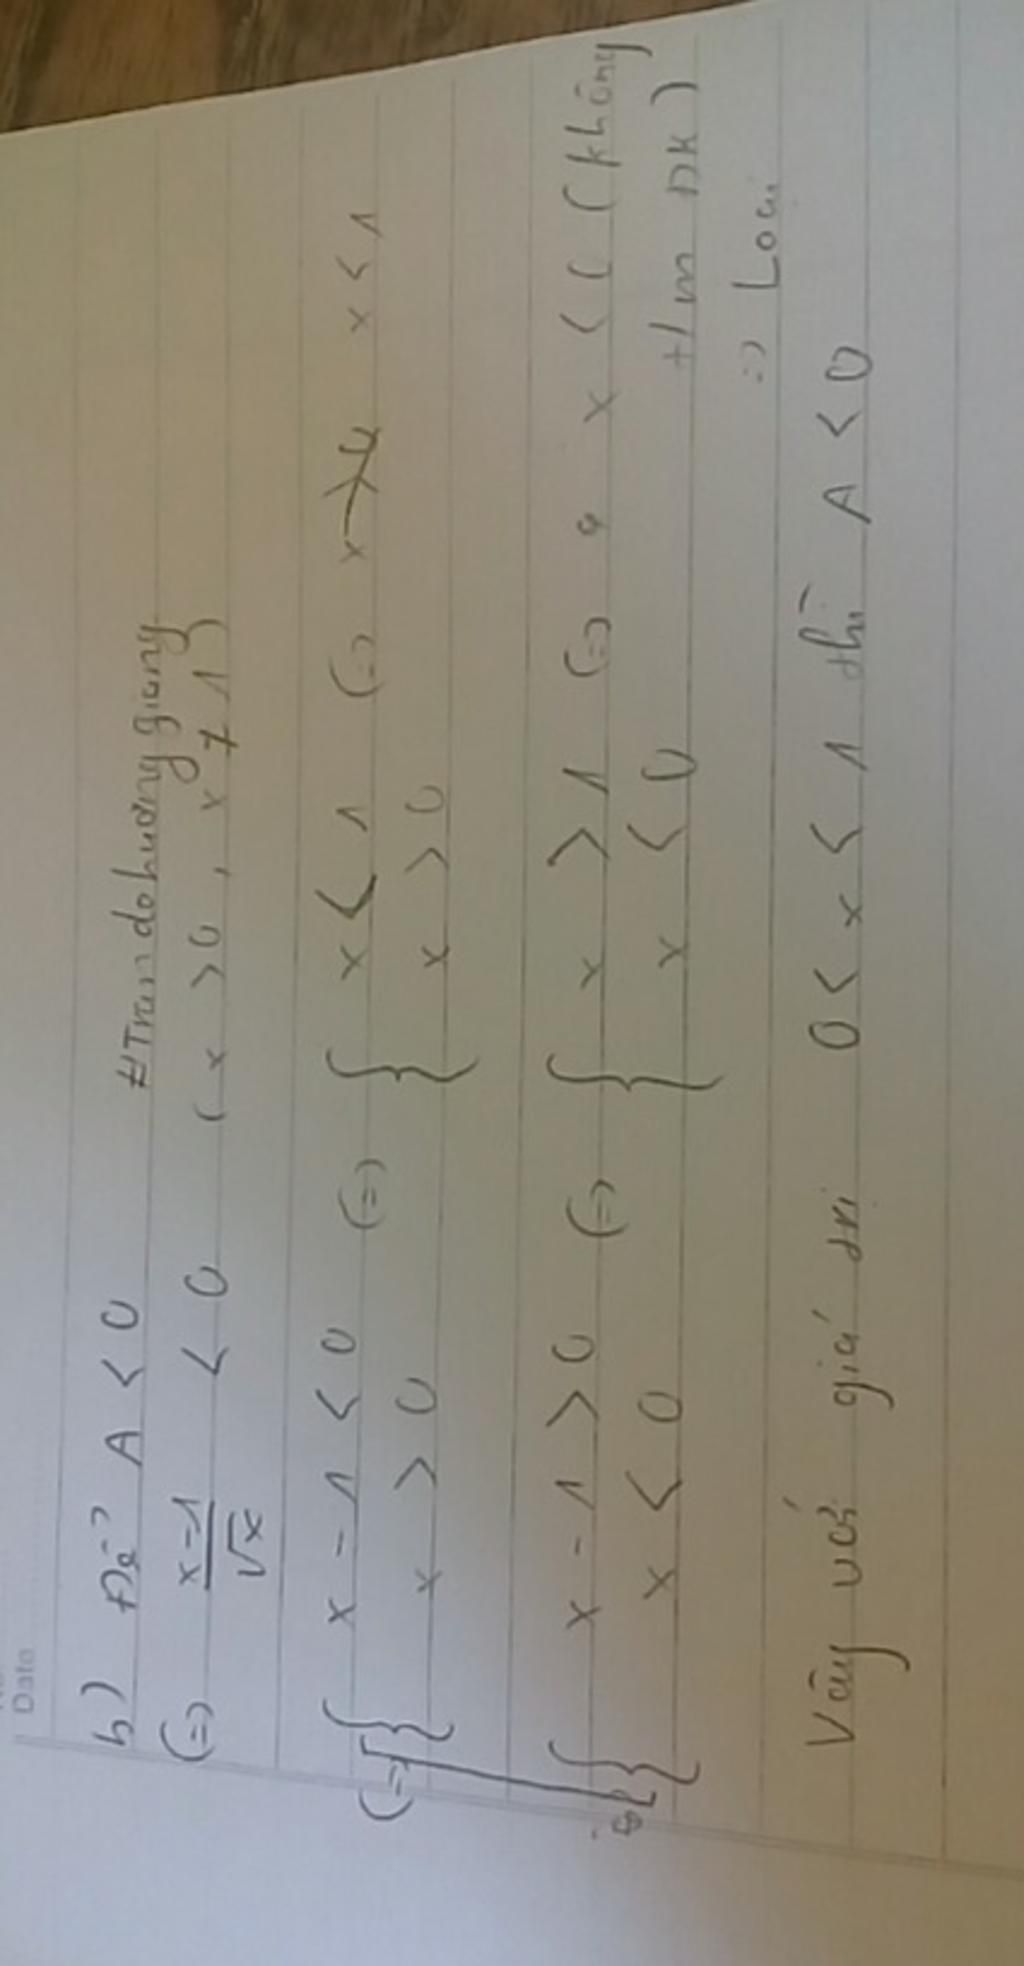 Date
b) Để A < 0
#Trandohuonggiang
(=) x-1/√x < 0 (x > 0, x ≠ 1)
(=) [ { x - 1 < 0 (=) { x < 1 (=) x < 1
x > 0 x > 0
{ x - 1 > 0 (=) { x > 1 (=) x < (không
x < 0 x < 0 t/m ĐK)
=) Loại
Vậy với giá trị 0 < x < 1 thì A < 0